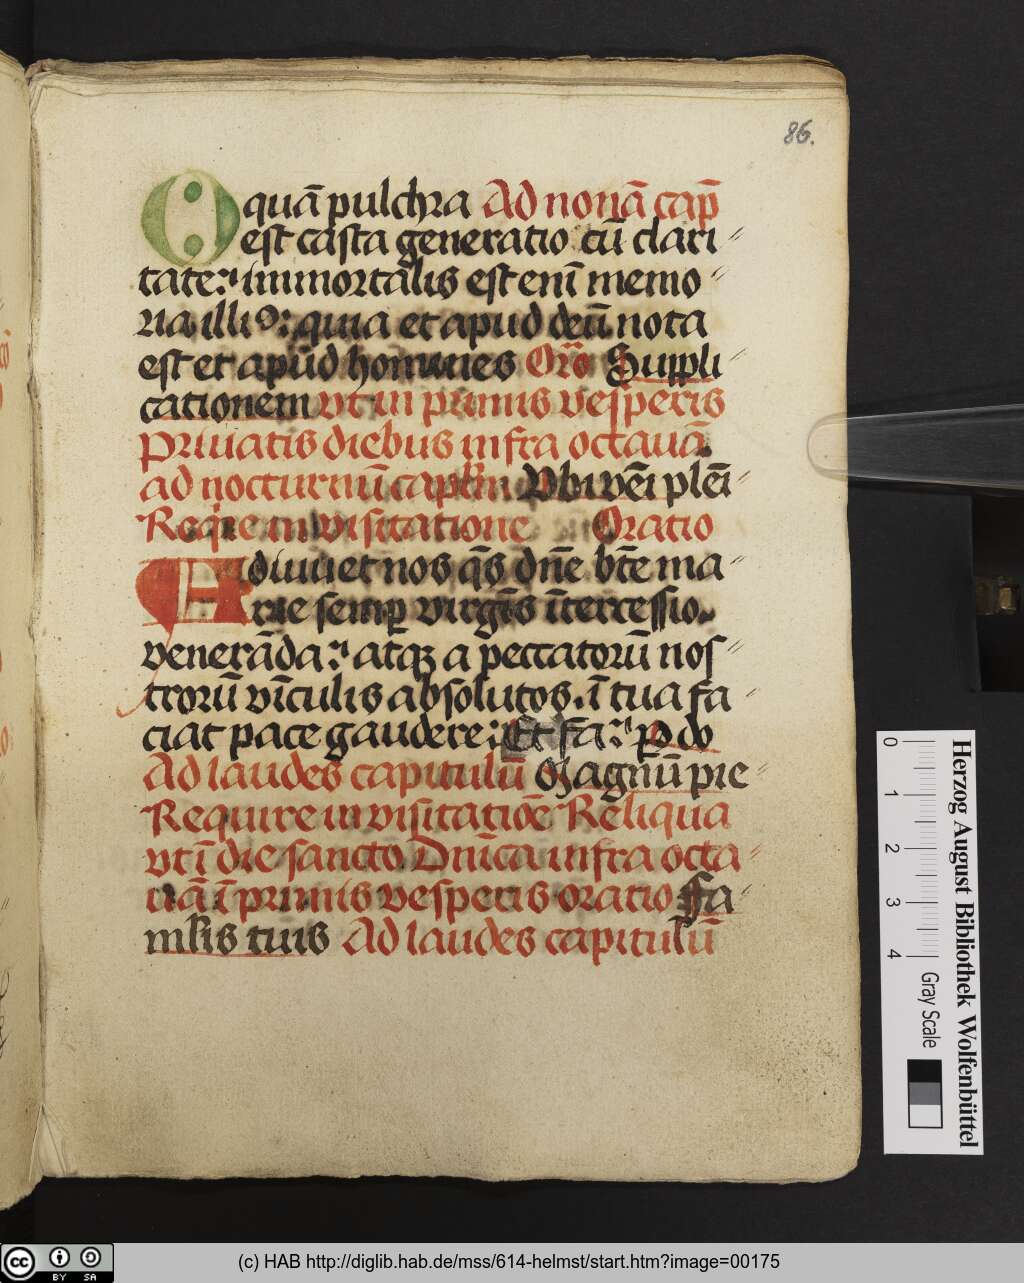 86.
O quā pulchra Ad nonā cap̄
est casta generatio cū clari〃
tate: immortalis est enī memo〃
ria illi9: quia et apud deū nota
est et apud homines Oro Suppli〃
cationem vt in primis vesperis
Priuatis diebus infra octauā
ad nocturnū caplm Vbi vēi plēi
Reqͥre in visitatione Oratio
Adiuuet nos qs̄ dn̄e btē ma〃
rie semp virgīs ītercessio
venerāda: atqꝫ a peccatorū nos〃
trorū vīculis absolutos. ī tua fa〃
ciat pace gaudere: Et fa: p do
Ad laudes capitulū Oꝫ agnū pie〃
Require in visitatiōe Reliqua
vt ī die sancto Dnīca infra octa〃
uā ī primis vesperis oratio Fa〃
mlis tuis Ad laudes capitulū
0
1
2
3
4
Gray Scale
Herzog August Bibliothek Wolfenbüttel
cc BY SA
(c) HAB http://diglib.hab.de/mss/614-helmst/start.htm?image=00175